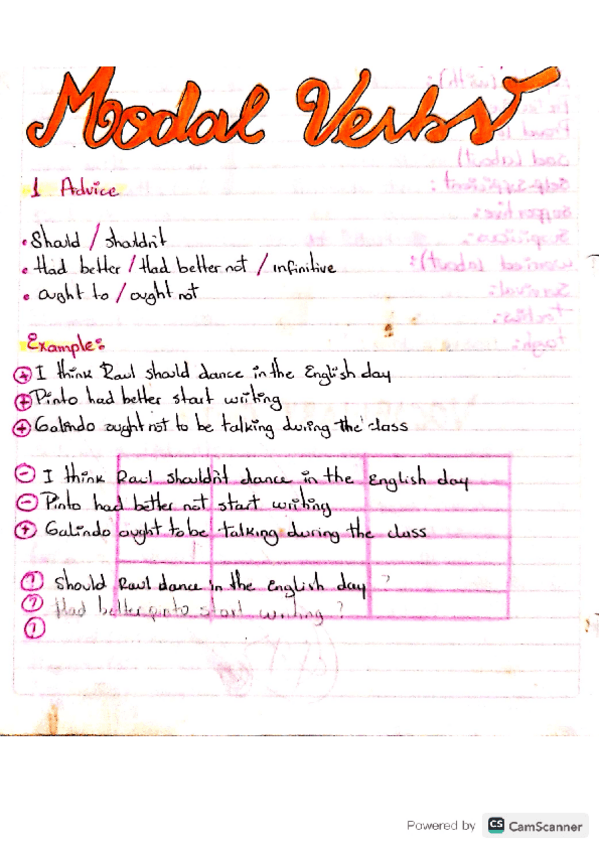 Modal Verbs
1 Advice
• Should / shouldn't
• Had better / Had better not / infinitive
• ought to / ought not
Example:
+ I think Raul should dance in the English day
+ Pinto had better start writing
+ Galindo ought not to be talking during the class
- I think Raul shouldn't dance in the English day
- Pinto had better not start writing
+ Galindo ought to be talking during the class
? Should Raul dance in the English day ?
? Had better pinto start writing ?
?
Powered by CS CamScanner